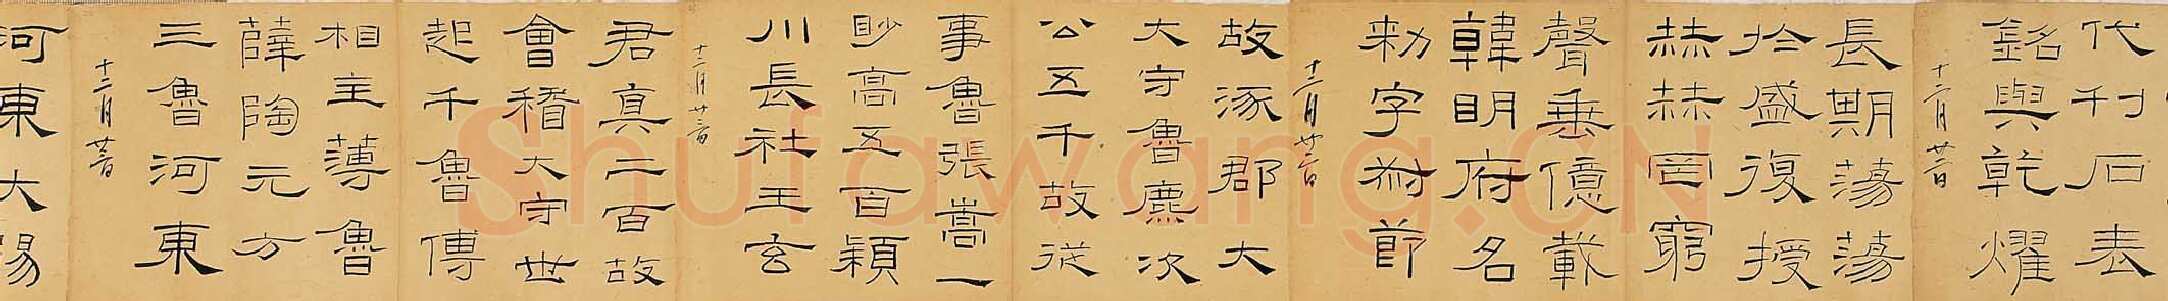 代刊石表
銘與乾燿
十二月廿二日
長期蕩蕩
於盛復授
赫赫罔窮
聲垂億載
韓明府名
勑字叔節
十二月廿二日
故涿郡大
大守魯麃次
公五千故從
事魯張嵩一
眇高五百潁
川長社王玄
十二月廿三日
君真二百故
會稽大守世
起千魯傅
相主薄魯
薛陶元方
三魯河東
十二月廿三日
河東大陽
Shufawang.CN